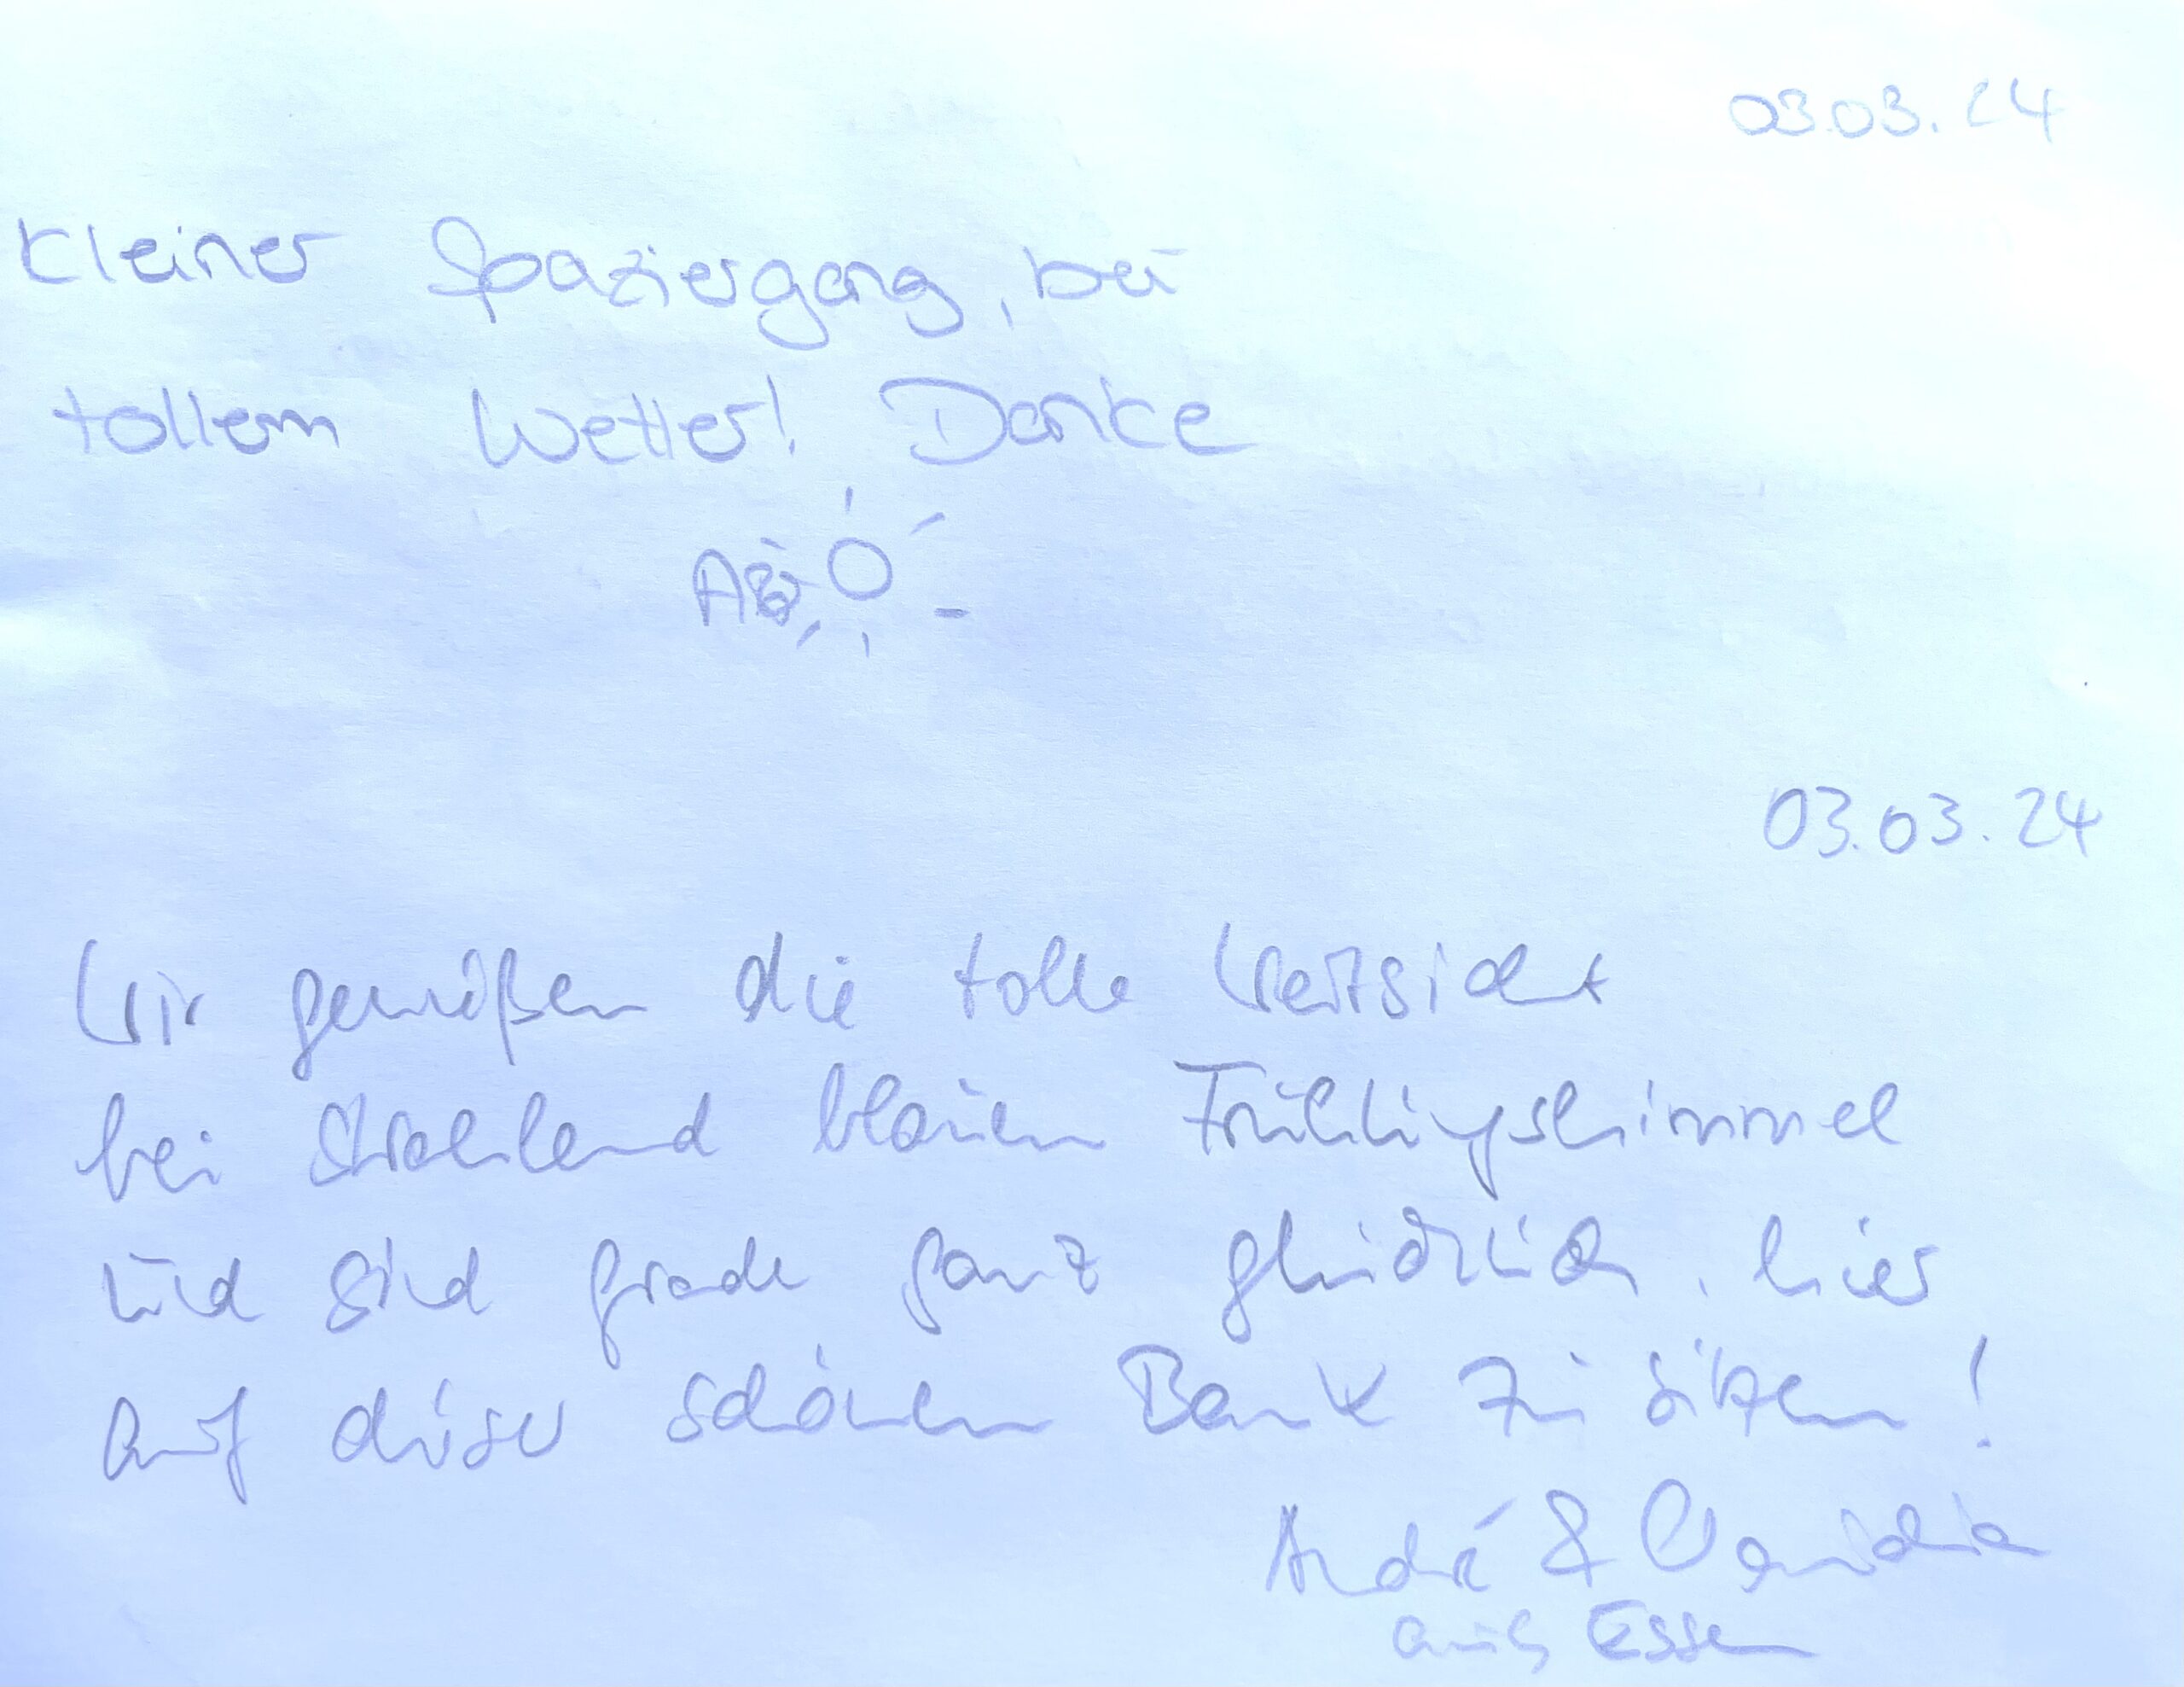 03.03.24
Kleiner Spaziergang, bei
tollem Wetter! Danke
03.03.24
Wir genießen die tolle Weitsicht
bei strahlend blauem Frühlingshimmel
und sind grade ganz glücklich, hier
auf dieser schönen Bank zu sitzen!
André & Claudia
aus Essen